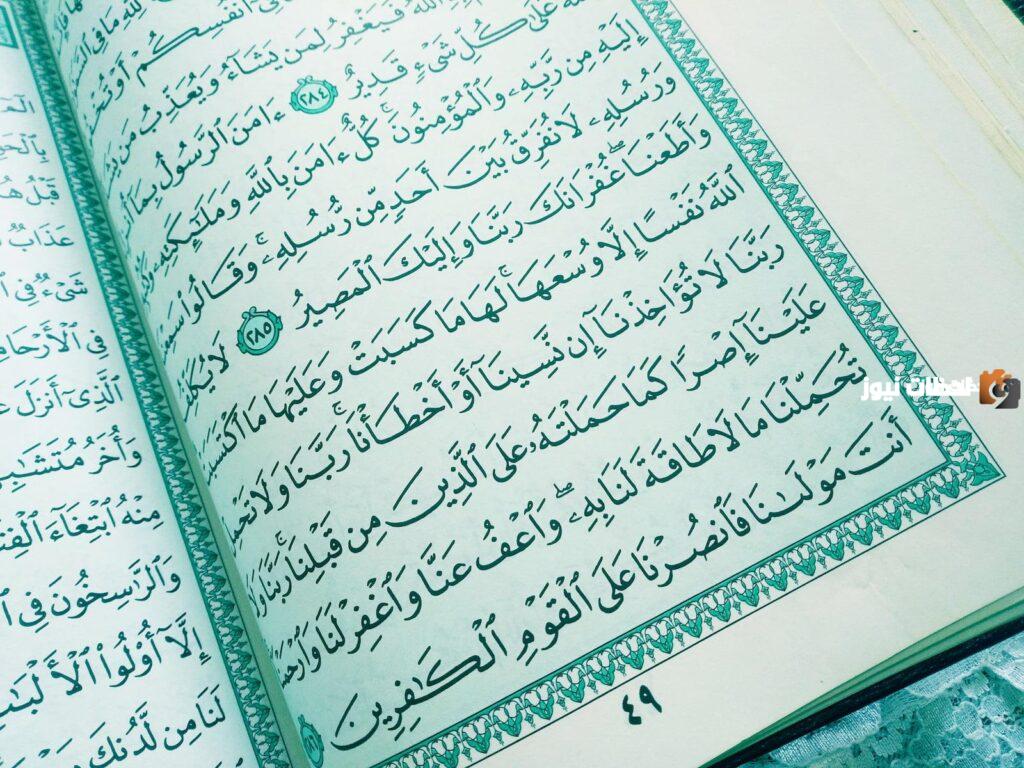 أَنفُسِكُمْ أَوْ
ٱللَّهُ فَيَغْفِرُ لِمَن يَشَآءُ وَيُعَذِّبُ مَن
عَلَىٰ كُلِّ شَىْءٍ قَدِيرٌ ٢٨٤ ءَامَنَ ٱلرَّسُولُ بِمَآ
إِلَيْهِ مِن رَّبِّهِۦ وَٱلْمُؤْمِنُونَ ۚ كُلٌّ ءَامَنَ بِٱللَّهِ وَمَلَٰٓئِكَتِهِۦ
وَرُسُلِهِۦ لَا نُفَرِّقُ بَيْنَ أَحَدٍ مِّن رُّسُلِهِۦ ۚ وَقَالُوا۟
وَأَطَعْنَا ۖ غُفْرَانَكَ رَبَّنَا وَإِلَيْكَ ٱلْمَصِيرُ ٢٨٥ لَا
ٱللَّهُ نَفْسًا إِلَّا وُسْعَهَا ۚ لَهَا مَا كَسَبَتْ وَعَلَيْهَا مَا
رَبَّنَا لَا تُؤَاخِذْنَآ إِن نَّسِينَآ أَوْ أَخْطَأْنَا ۚ رَبَّنَا وَلَا
عَلَيْنَآ إِصْرًا كَمَا حَمَلْتَهُۥ عَلَى ٱلَّذِينَ مِن قَبْلِنَا ۚ رَبَّنَا
تُحَمِّلْنَا مَا لَا طَاقَةَ لَنَا بِهِۦ ۖ وَٱعْفُ عَنَّا وَٱغْفِرْ لَنَا
أَنتَ مَوْلَىٰنَا فَٱنصُرْنَا عَلَى ٱلْقَوْمِ ٱلْكَٰفِرِينَ
٤٩
قَبْلُ
عَذَابٌ
شَىْءٌ فِى
فِى ٱلْأَرْحَا
ٱلَّذِىٓ أَنزَلَ
وَأُخَرُ
مِنْهُ ٱبْتِغَآءَ
وَٱلرَّٰسِخُونَ فِى
إِلَّآ أُو۟لُوا۟ ٱلْأَلْبَٰ
لَنَا مِن لَّدُنكَ
لحظات نيوز